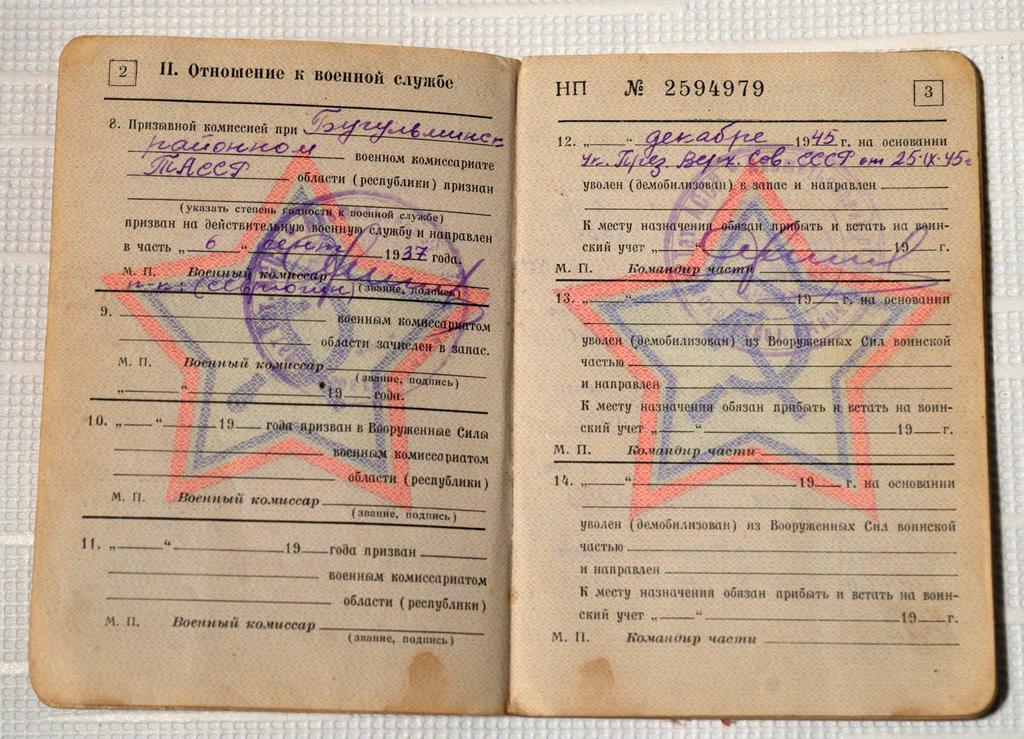 2
II. Отношение к военной службе
8. Призывной комиссией при Бугульминск
районном военном комиссариате
ТАССР области (республики) признан
(указать степень годности к военной службе)
призван на действительную военную службу и направлен
в часть „ 6 “ сент 1937 года.
М. П. Военный комиссар
(звание, подпись)
9. военным комиссариатом
области зачислен в запас.
М. П. Военный комиссар
(звание, подпись)
„ “ 19 года.
10. „ “ 19 года призван в Вооруженные Силы
военным комиссариатом
области (республики)
М. П. Военный комиссар
(звание, подпись)
11. „ “ 19 года призван
военным комиссариатом
области (республики)
М. П. Военный комиссар
(звание, подпись)
НП № 2594979
3
12. „ “ декабре 1945 г. на основании
Ук. През. Верх. Сов. СССР от 25·IX·45г
уволен (демобилизован) в запас и направлен
К месту назначения обязан прибыть и встать на воин-
ский учет „ “ 19 г.
М. П. Командир части
13. „ “ 19 г. на основании
уволен (демобилизован) из Вооруженных Сил воинской
частью
и направлен
К месту назначения обязан прибыть и встать на воин-
ский учет „ “ 19 г.
М. П. Командир части
14. „ “ 19 г. на основании
уволен (демобилизован) из Вооруженных Сил воинской
частью
и направлен
К месту назначения обязан прибыть и встать на воин-
ский учет „ “ 19 г.
М. П. Командир части